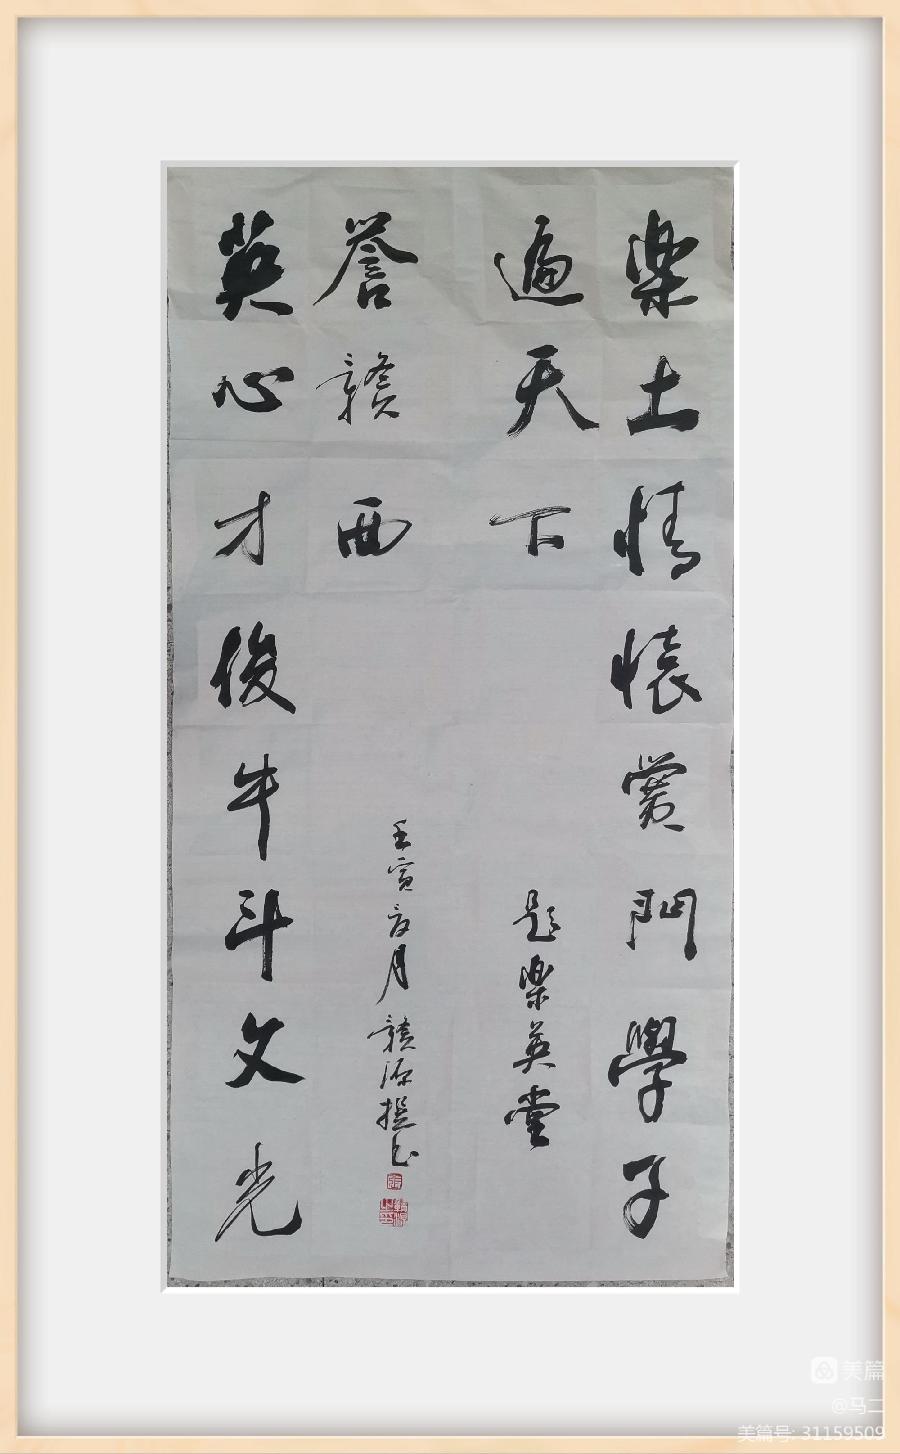 樂土情懷黌門學子
遍天下
題樂英堂
英心才俊牛斗文光
譽贛西
壬寅月贛源撰书
美篇
@马二
美篇号: 31159509